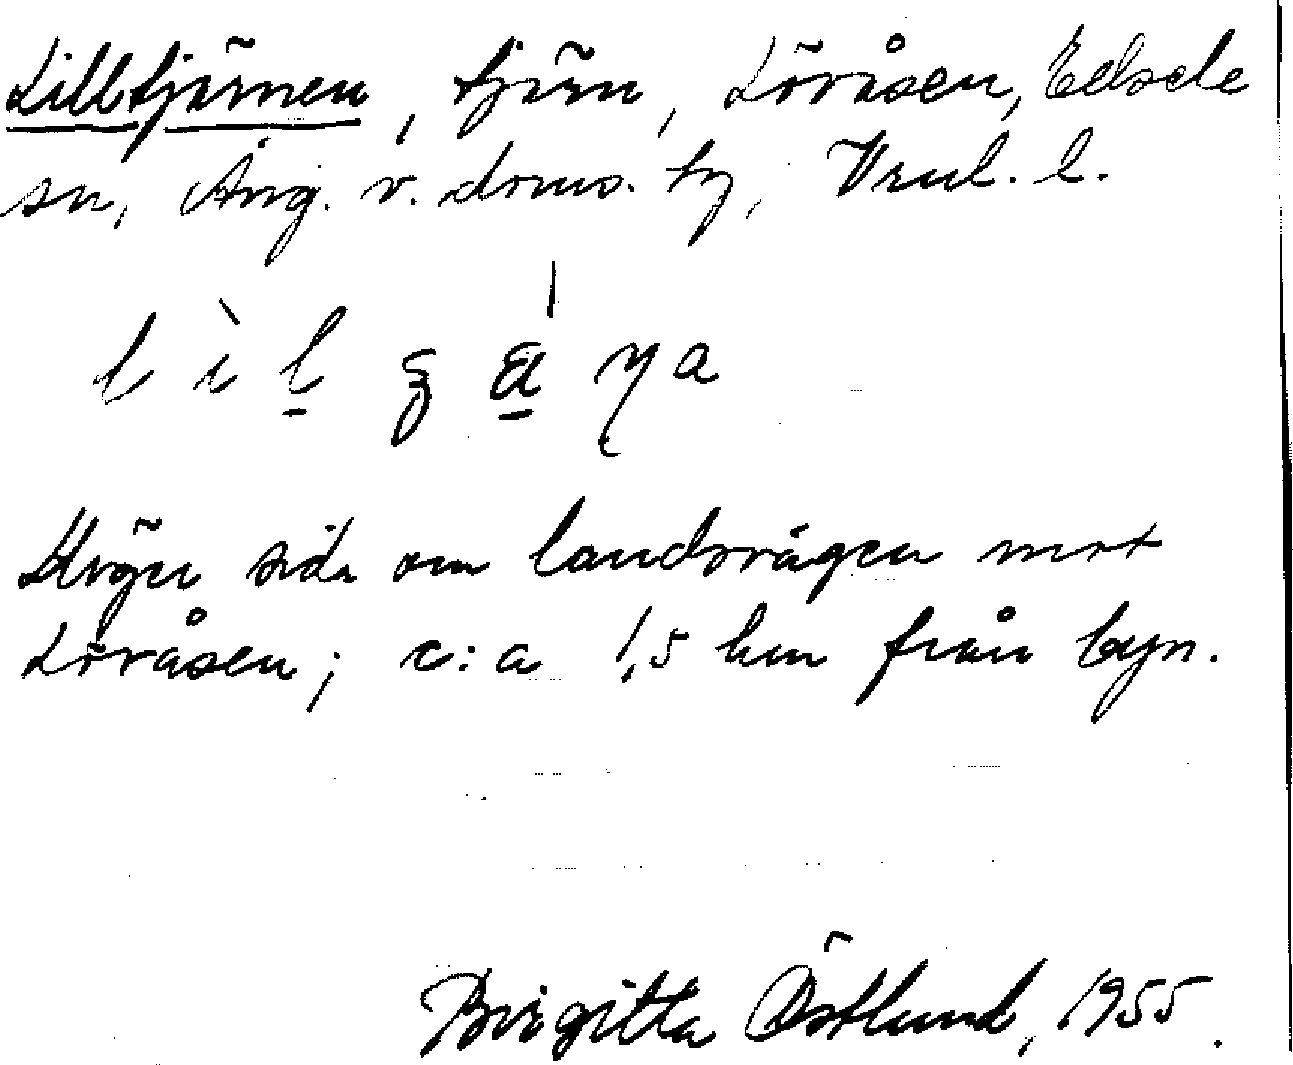 Lilltjärnen, tjärn, Lövåsen, Edsele
sn, Ång. v. doms. tg,
Höger sida om landsvägen mot
Lövåsen; c:a 1,5 km från byn.
Birgitta Östlund, 1955.